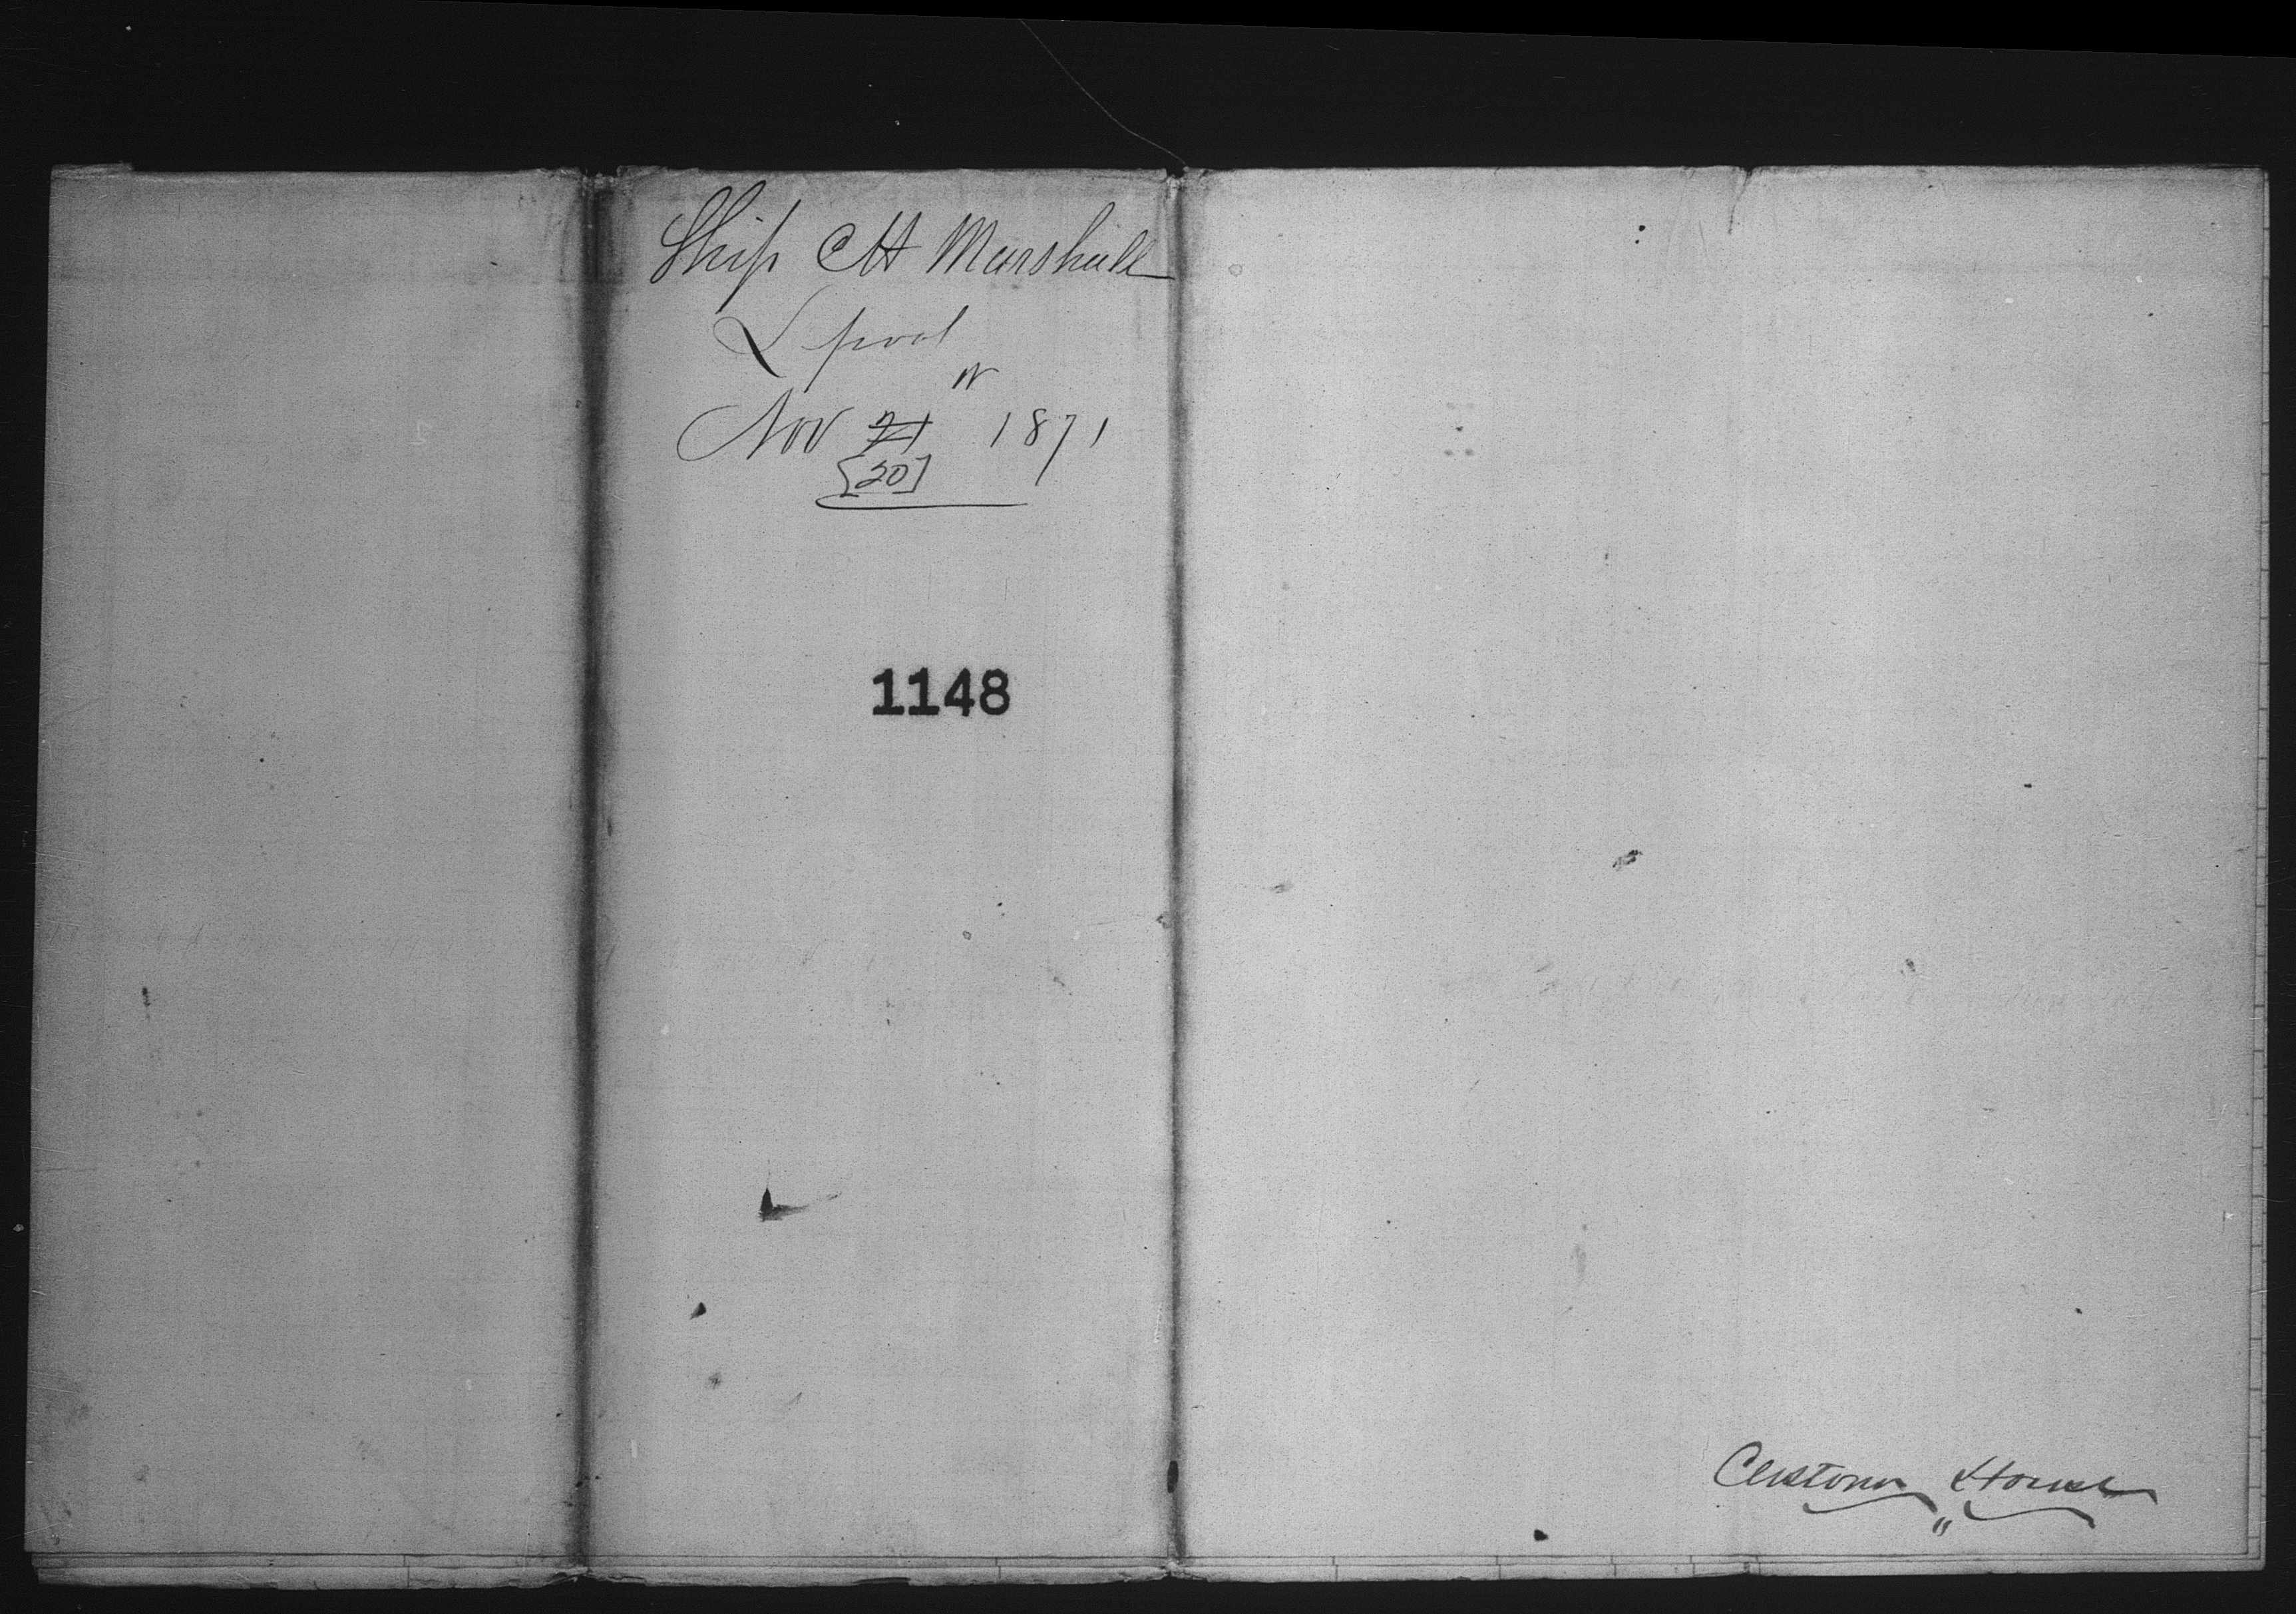 Ship CH Marshall
L pool
Nov 21 " 1871
[20]
1148
Custom House